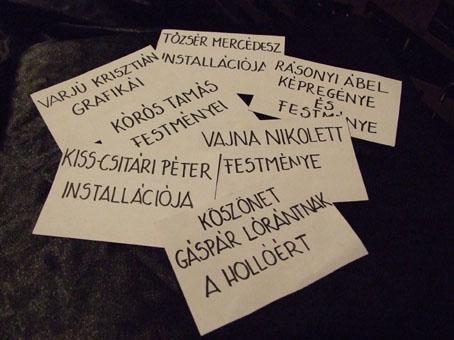 TŐZSÉR MERCÉDESZ
INSTALLÁCIÓJA
RÁSONYI ÁBEL
KÉPREGÉNYE
ÉS
FESTMÉNYE
VARJÚ KRISZTIÁN
GRAFIKÁI
KÖRÖS TAMÁS
FESTMÉNYEI
VAJNA NIKOLETT
FESTMÉNYE
KISS-CSITÁRI PÉTER
INSTALLÁCIÓJA
KÖSZÖNET
GÁSPÁR LÓRÁNTNAK
A HOLLÓÉRT